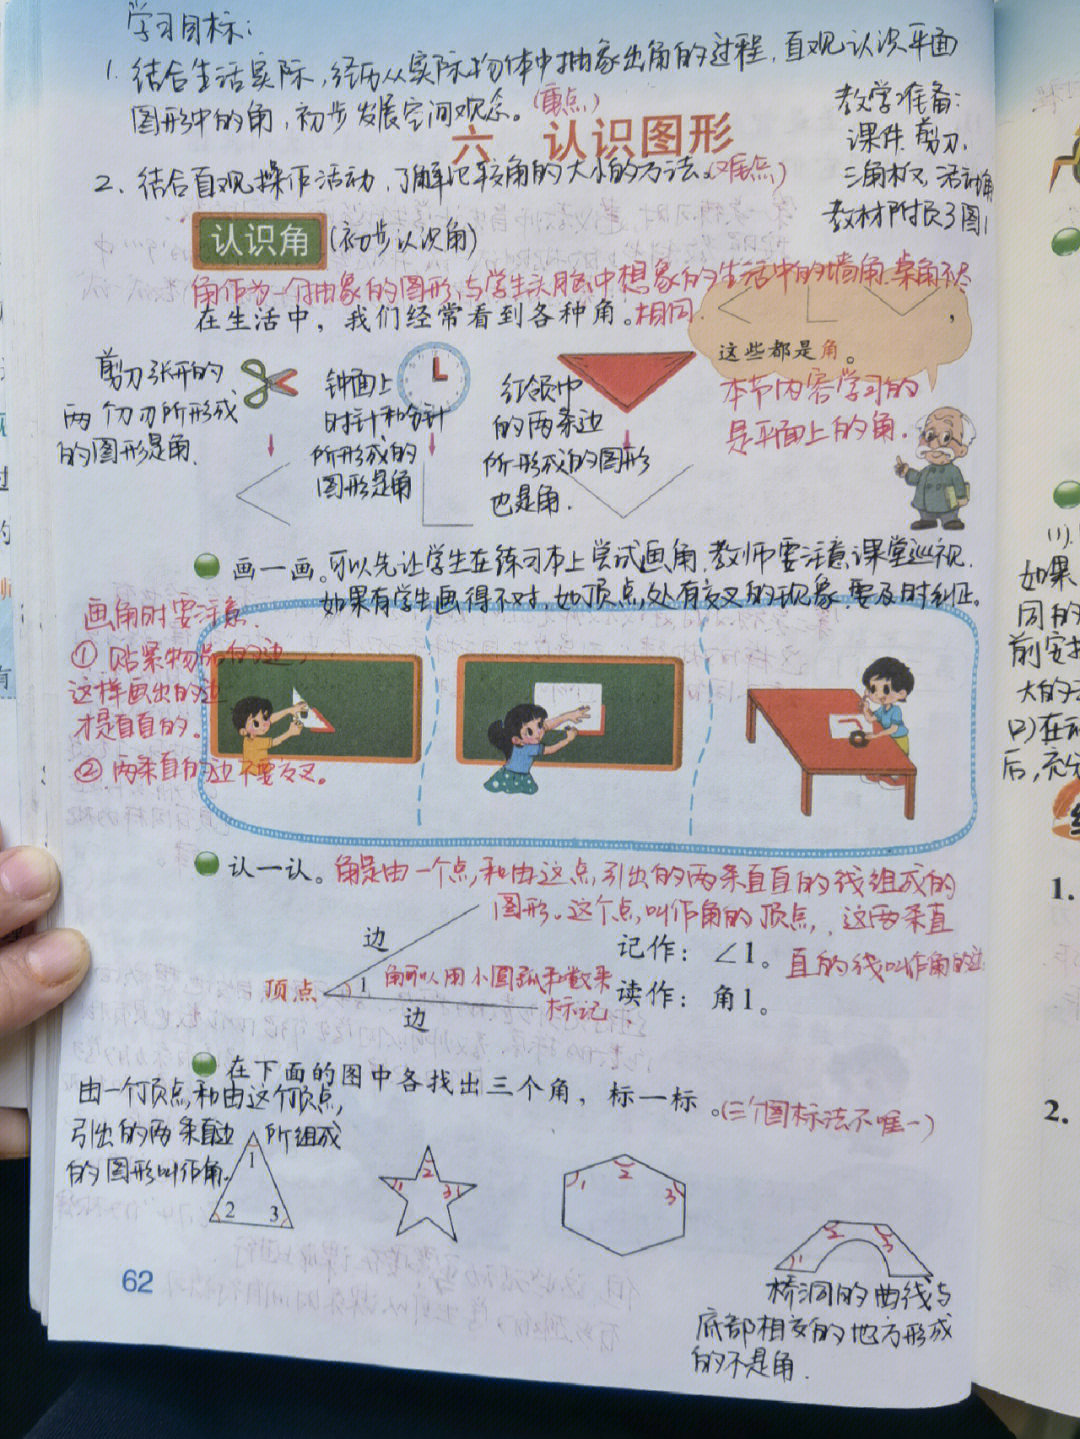 学习目标：
1. 结合生活实际，经历从实际物体中抽象出角的过程，直观认识平面
图形中的角，初步发展空间观念。(重点)
教学准备：
课件、剪刀、
三角板、活动角
教材附页3图1
六 认识图形
2、结合直观操作活动，了解比较角的大小的方法。(难点)
认识角
(初步认识角)
角作为一个抽象的图形，与学生头脑中想象的生活中的墙角、桌角不尽
相同.
在生活中，我们经常看到各种角。
，
这些都是角。
剪刀张开的
两个刀刃所形成
的图形是角.
钟面上
时针和分针
所形成的
图形是角
红领巾
的两条边
所形成的图形
也是角.
本节内容学习的
是平面上的角.
画一画。
可以先让学生在练习本上尝试画角，教师要注意课堂巡视.
如果有学生画得不对，如顶点处有交叉的现象，要及时纠正。
画角时要注意.
① 贴紧物品的边，
这样画出的边
才是直直的。
② 两条直的边不要交叉。
认一认。
角是由一个点，和由这点引出的两条直直的线组成的
图形。这个点叫作角的顶点，这两条直
直的线叫作角的边
边
顶点
1
边
角可以用小圆弧和数来
标记。
记作：∠1。
读作：角1。
在下面的图中各找出三个角，标一标。
(三个图标法不唯一)
由一个顶点，和由这个顶点，
引出的两条直边所组成
的图形叫作角.
1
2 3
1 2 3
1 2 3
1 2 3
桥洞的曲线与
底部相交的地方形成
的不是角.
62
(1).
如果
同的
大的
后，充分
1.
2.